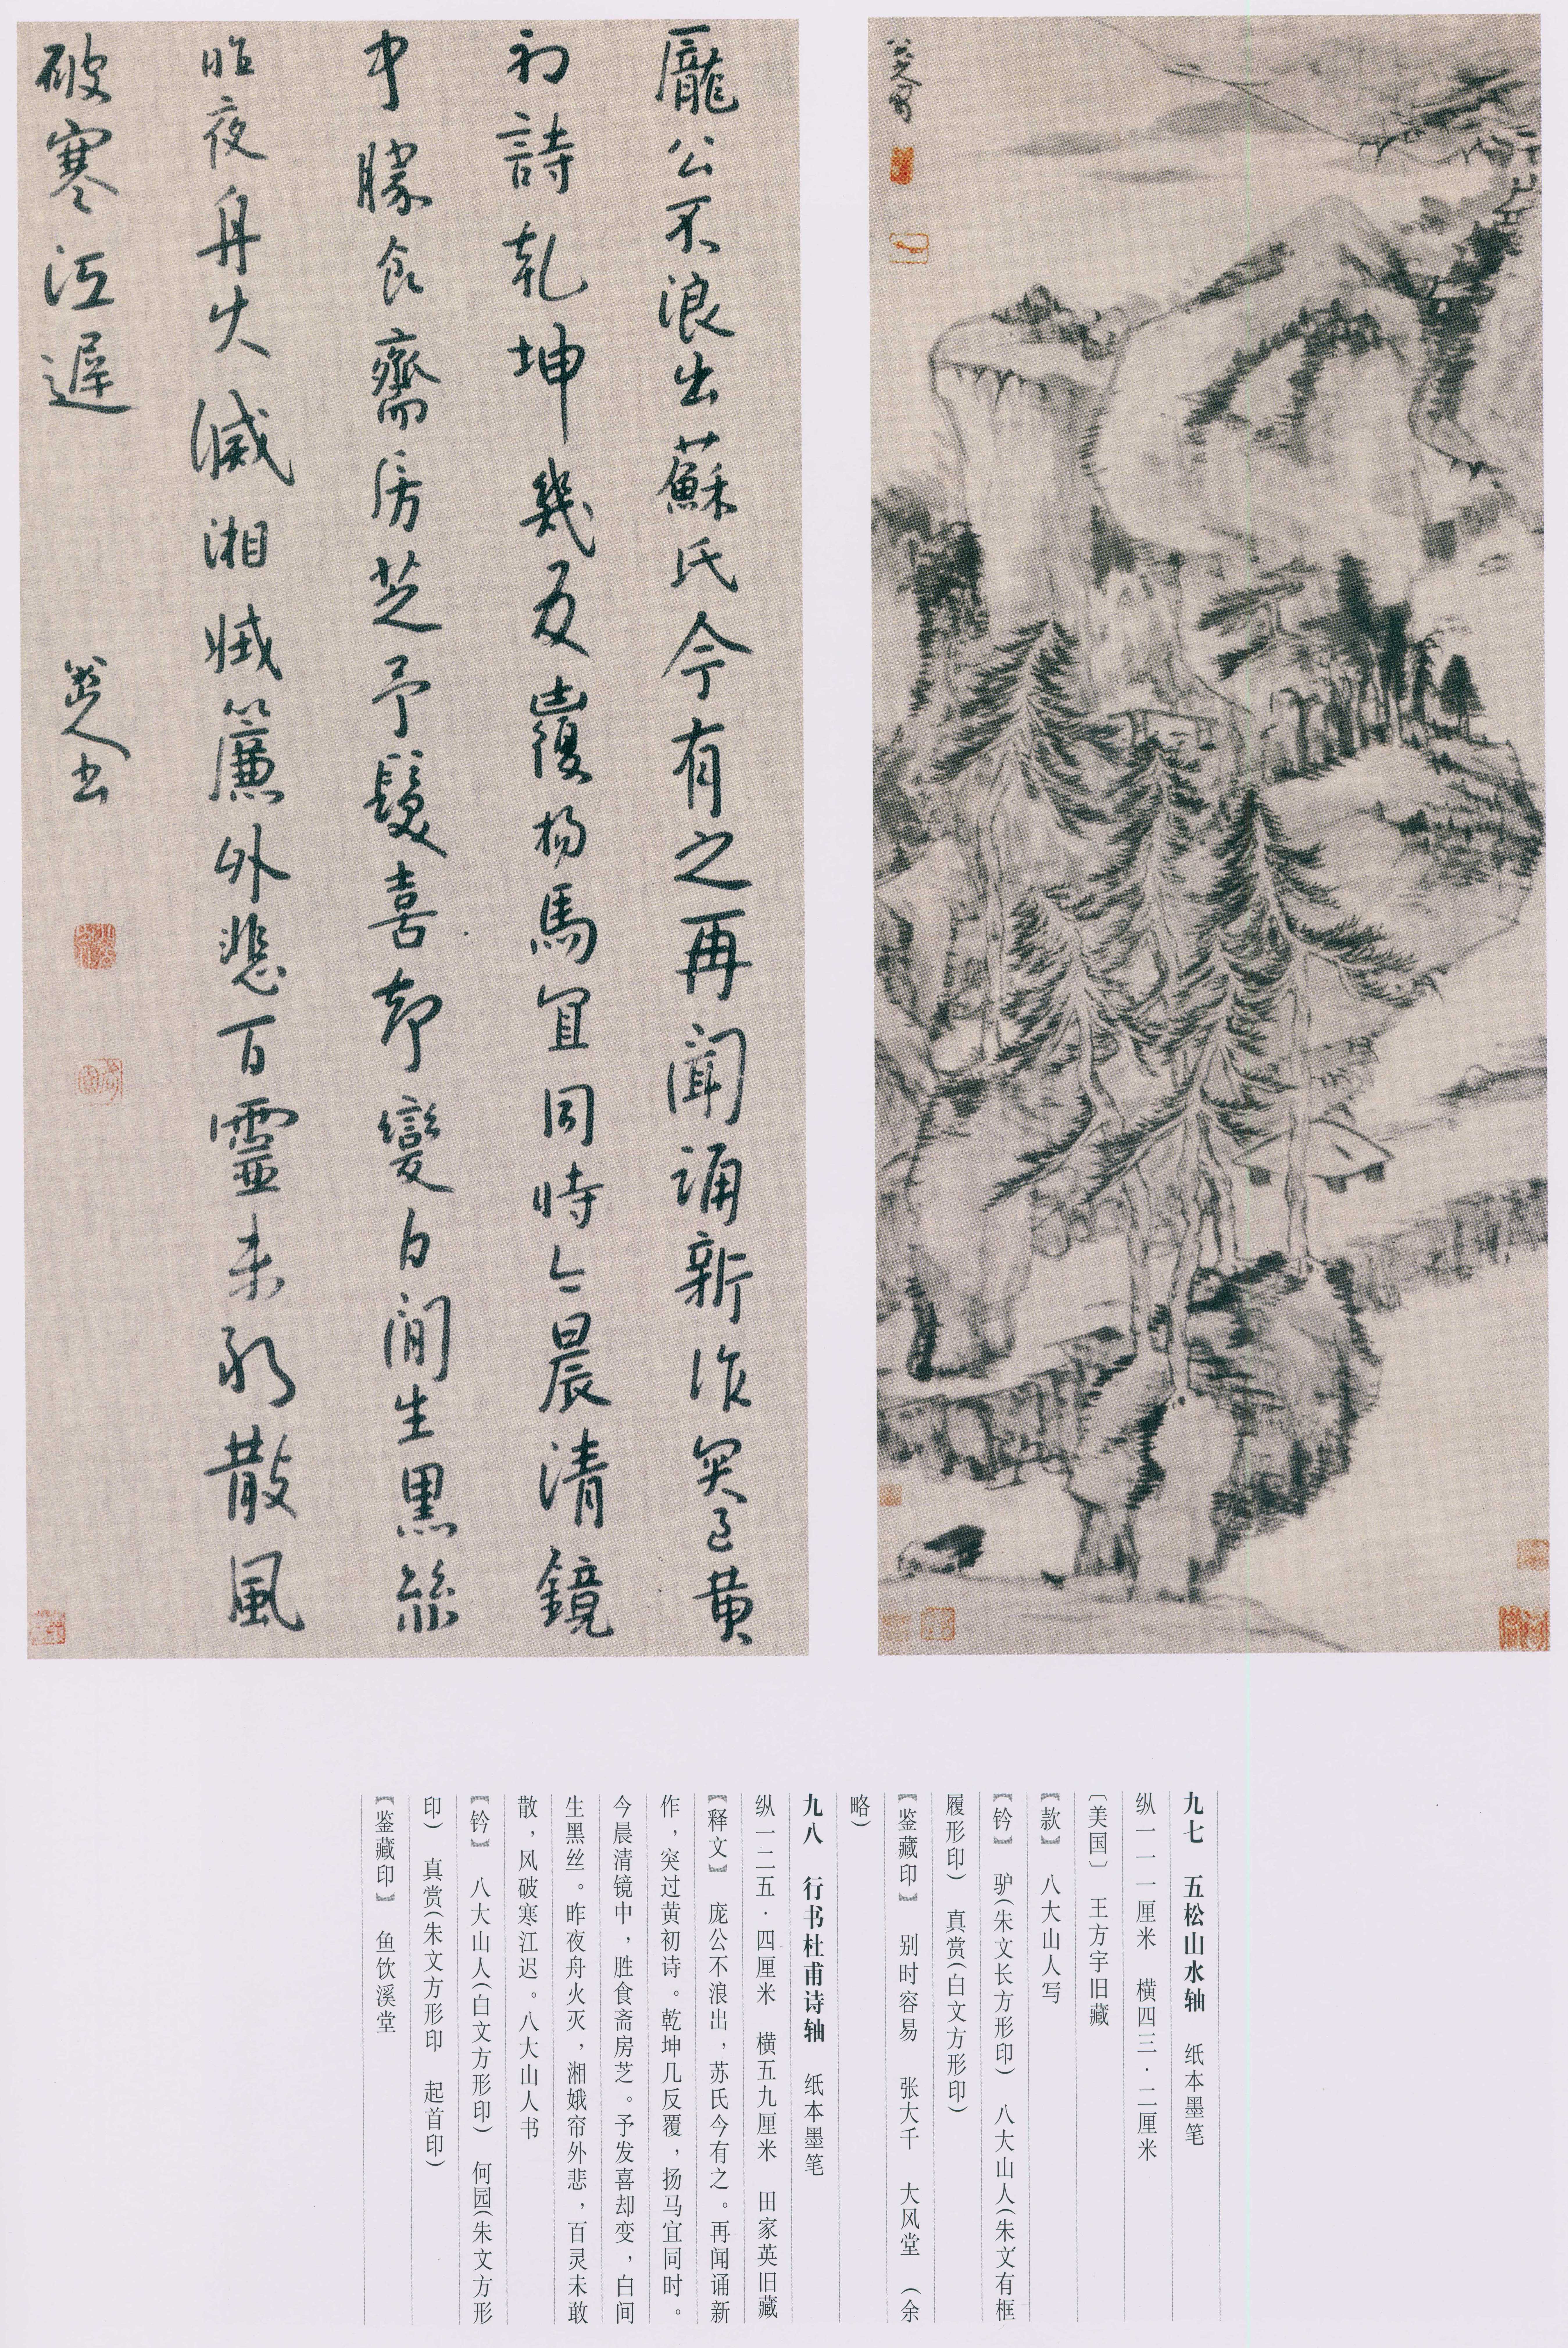 八大山人寫
龐公不浪出蘇氏今有之再聞誦新作突過黄
初詩乾坤幾反覆楊馬宜同時今晨清鏡
中勝食齋房芝予髮喜却變白間生黑絲
昨夜舟火滅湘娥簾外悲百靈未敢散風
破寒江遲
八大山人書
九七　五松山水轴　纸本墨笔
纵一一一厘米　横四三·二厘米
〔美国〕　王方宇旧藏
【款】　八大山人写
【钤】　驴(朱文长方形印)　八大山人(朱文有框
履形印)　真赏(白文方形印)
【鉴藏印】　别时容易　张大千　大风堂　(余
略)
九八　行书杜甫诗轴　纸本墨笔
纵一二五·四厘米　横五九厘米　田家英旧藏
【释文】　庞公不浪出，苏氏今有之。再闻诵新
作，突过黄初诗。乾坤几反覆，扬马宜同时。
今晨清镜中，胜食斋房芝。予发喜却变，白间
生黑丝。昨夜舟火灭，湘娥帘外悲，百灵未敢
散，风破寒江迟。八大山人书
【钤】　八大山人(白文方形印)　何园(朱文方形
印)　真赏(朱文方形印　起首印)
【鉴藏印】　鱼饮溪堂